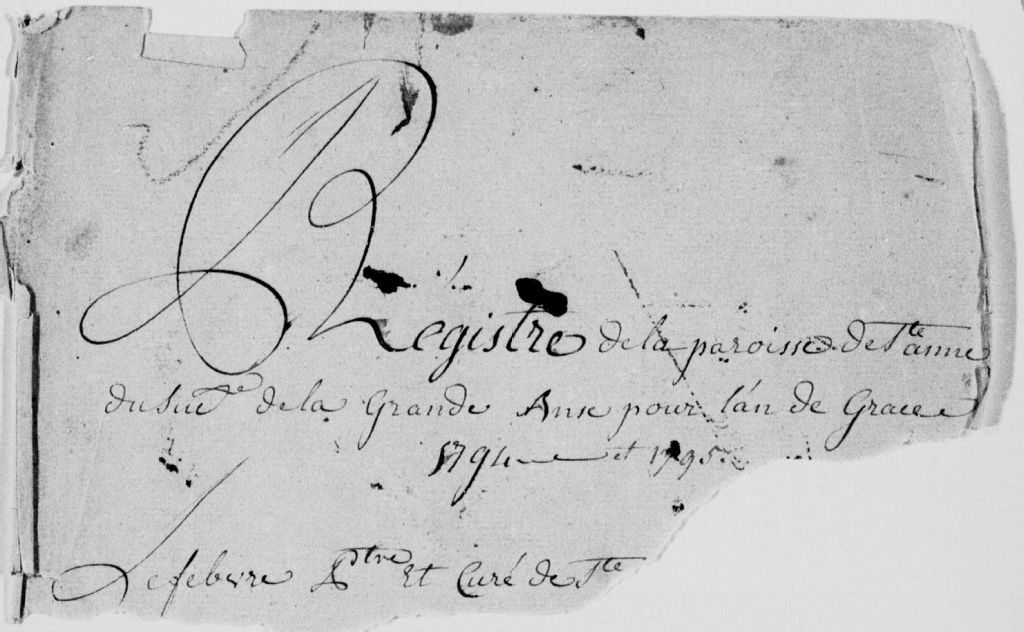 Registre de la paroisse de Ste anne
du de la Grande Anse pour l'an de Grace
1794 et 1795
Lefebvre Ptre Et Curé de Ste